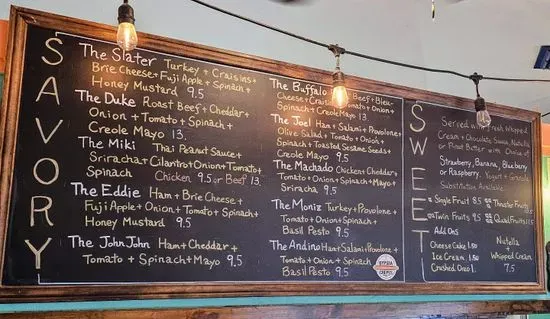 SAVORY
The Slater Turkey + Craisins +
Brie Cheese + Fuji Apple + Spinach +
Honey Mustard 9.5
The Duke Roast Beef + Cheddar +
Onion + Tomato + Spinach +
Creole Mayo 13.
The Miki Thai Peanut Sauce +
Sriracha + Cilantro + Onion + Tomato +
Spinach Chicken 9.5 or Beef 13.
The Eddie Ham + Brie Cheese +
Fuji Apple + Onion + Tomato + Spinach +
Honey Mustard 9.5
The JohnJohn Ham + Cheddar +
Tomato + Spinach + Mayo 9.5
The Buffalo Beef + Bleu-
Cheese + Tomato + Onion +
Spinach + Creole Mayo 13.
The Joel Ham + Salami + Provolone +
Olive Salad + Tomato + Onion +
Spinach + Toasted Sesame Seeds +
Creole Mayo 9.5
The Machado Chicken + Cheddar +
Tomato + Onion + Spinach + Mayo +
Sriracha 9.5
The Moniz Turkey + Provolone +
Tomato + Onion + Spinach +
Basil Pesto 9.5
The Andino Ham + Salami + Provolone +
Tomato + Onion + Spinach +
Basil Pesto 9.5
CREPES
SWEET
Served with Fresh Whipped
Cream + Chocolate Sauce, Nutella
or Peanut Butter with Choice of
Strawberry, Banana, Blueberry
or Raspberry. Yogurt + Granola
Substitution Available
Single Fruit 8.5
Threester Fruits
Twin Fruits 9.5
Quad Fruits 11.5
Add Ons
Cheese Cake 1.50
Ice Cream 1.50
Crushed Oreo 1.
Nutella
+
Whipped Cream
7.5